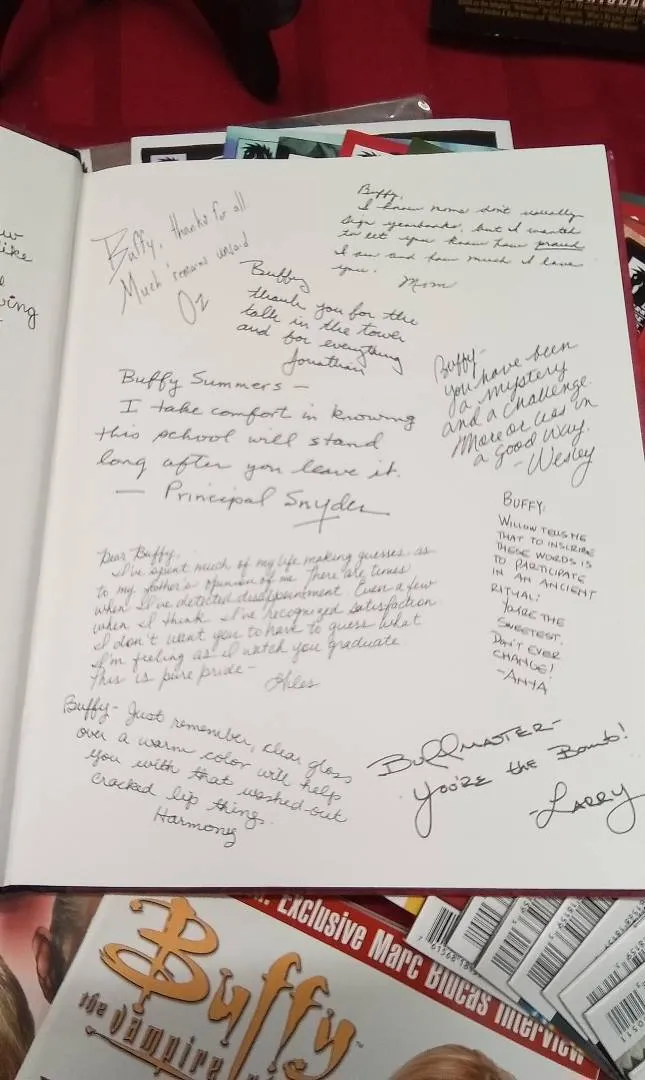 w
like
e
ving
Buffy, thanks for all
Much remains unsaid
Oz
Buffy,
I know moms don't usually
sign yearbooks, but I wanted
to let you know how proud
I am and how much I love
you.
Mom
Buffy
thank you for the
talk in the tower
and for everything
Jonathan
Buffy-
you have been
a mystery
and a challenge.
More or less in
a good way.
- Wesley
Buffy Summers –
I take comfort in knowing
this school will stand
long after you leave it.
— Principal Snyder
BUFFY:
WILLOW TELLS ME
THAT TO INSCRIBE
THESE WORDS IS
TO PARTICIPATE
IN AN ANCIENT
RITUAL:
YOU'RE THE
SWEETEST.
DON'T EVER
CHANGE!
-ANYA
Dear Buffy,
I've spent much of my life making guesses as
to my father's opinion of me. There are times
when I've detected disappointment. Even a few
when I think I've recognized satisfaction.
I don't want you to have to guess what
I'm feeling as I watch you graduate
This is pure pride-
Giles
Buffy- Just remember, clear gloss
over a warm color will help
you with that washed-out
cracked lip thing.
Harmony
BUFFMASTER-
YOU'RE the Bomb!
-LARRY
Exclusive Marc Blucas Interview
Buffy
the vampire